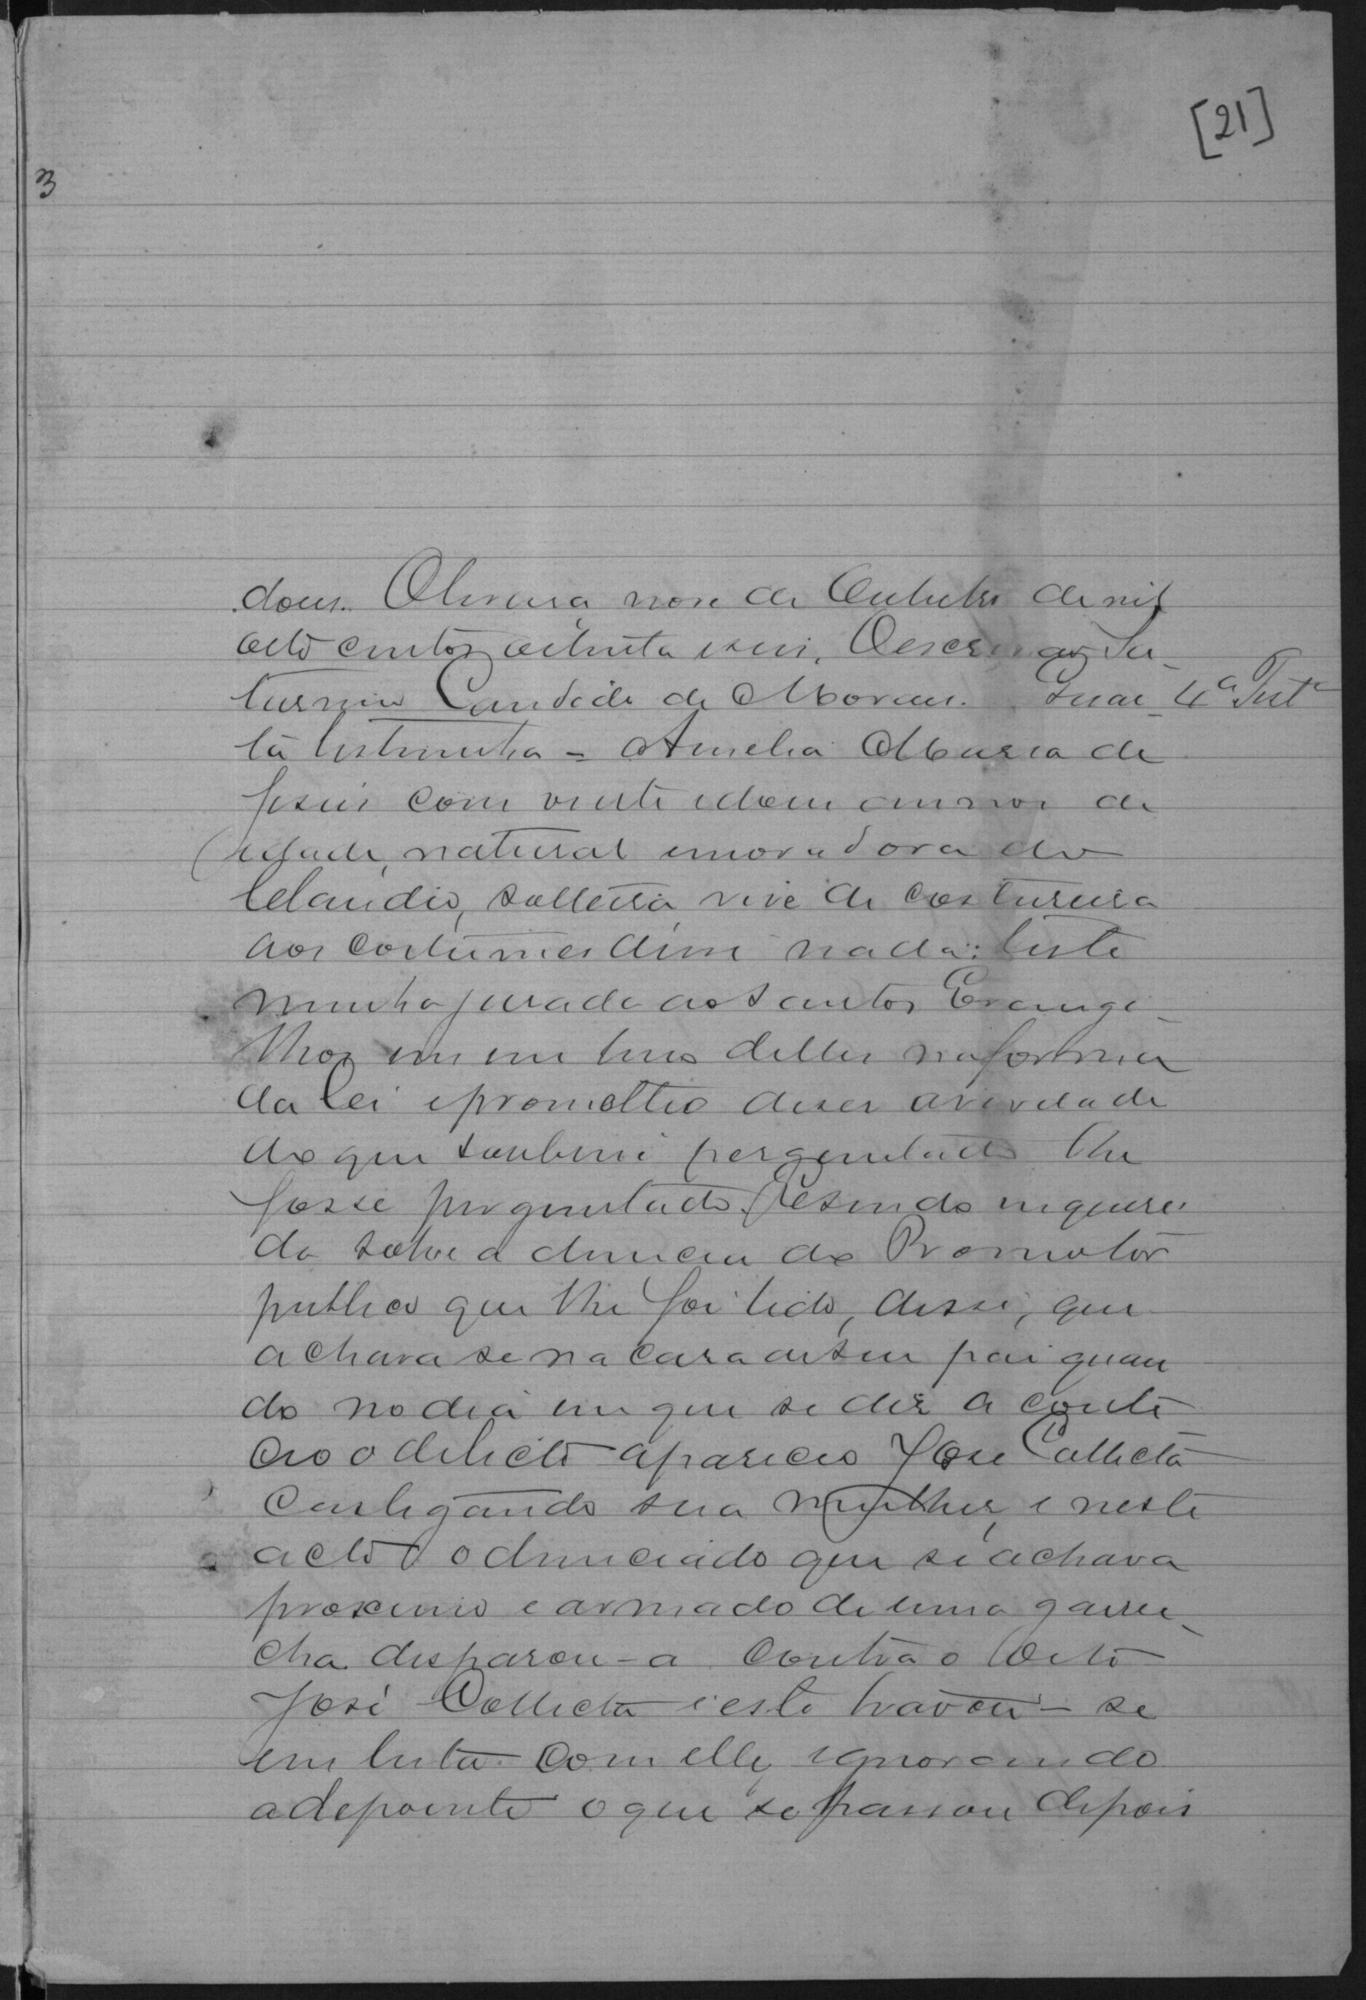 [21]
3
dous. Oliveira nove de Outubro de mil
oito centos oitenta e seis. O escrivão Sa-
turnino Candido de Moraes. Quar- 4ª Testª
ta testimunha = Amelia Maria de
Jesus com vinte e dous annos de
idade, natural e moradora do
Claudio, solteira vive de costureira
aos costumes disse nada: teste
munha jurada aos Santos Evange-
lhos em um livro delles na forma
da lei e prometteo diser a verdade
do que soubesse e perguntado lhe
fosse perguntado. E sendo inqueri
da sobre a denuncia do Promotor
publico que lhe foi lido, disse, que
achava se na casa de seu pai quan
do no dia em que se diz a conte
ceo o delicto apareceo José Collecta
castigando sua mulher, e neste
acto o denunciado que se achava
proximo e armado de uma garru-
cha disparou-a contra o dito
José Collecta e este travou-se
em luta com elle, ignorando
a depoente o que se passou depois